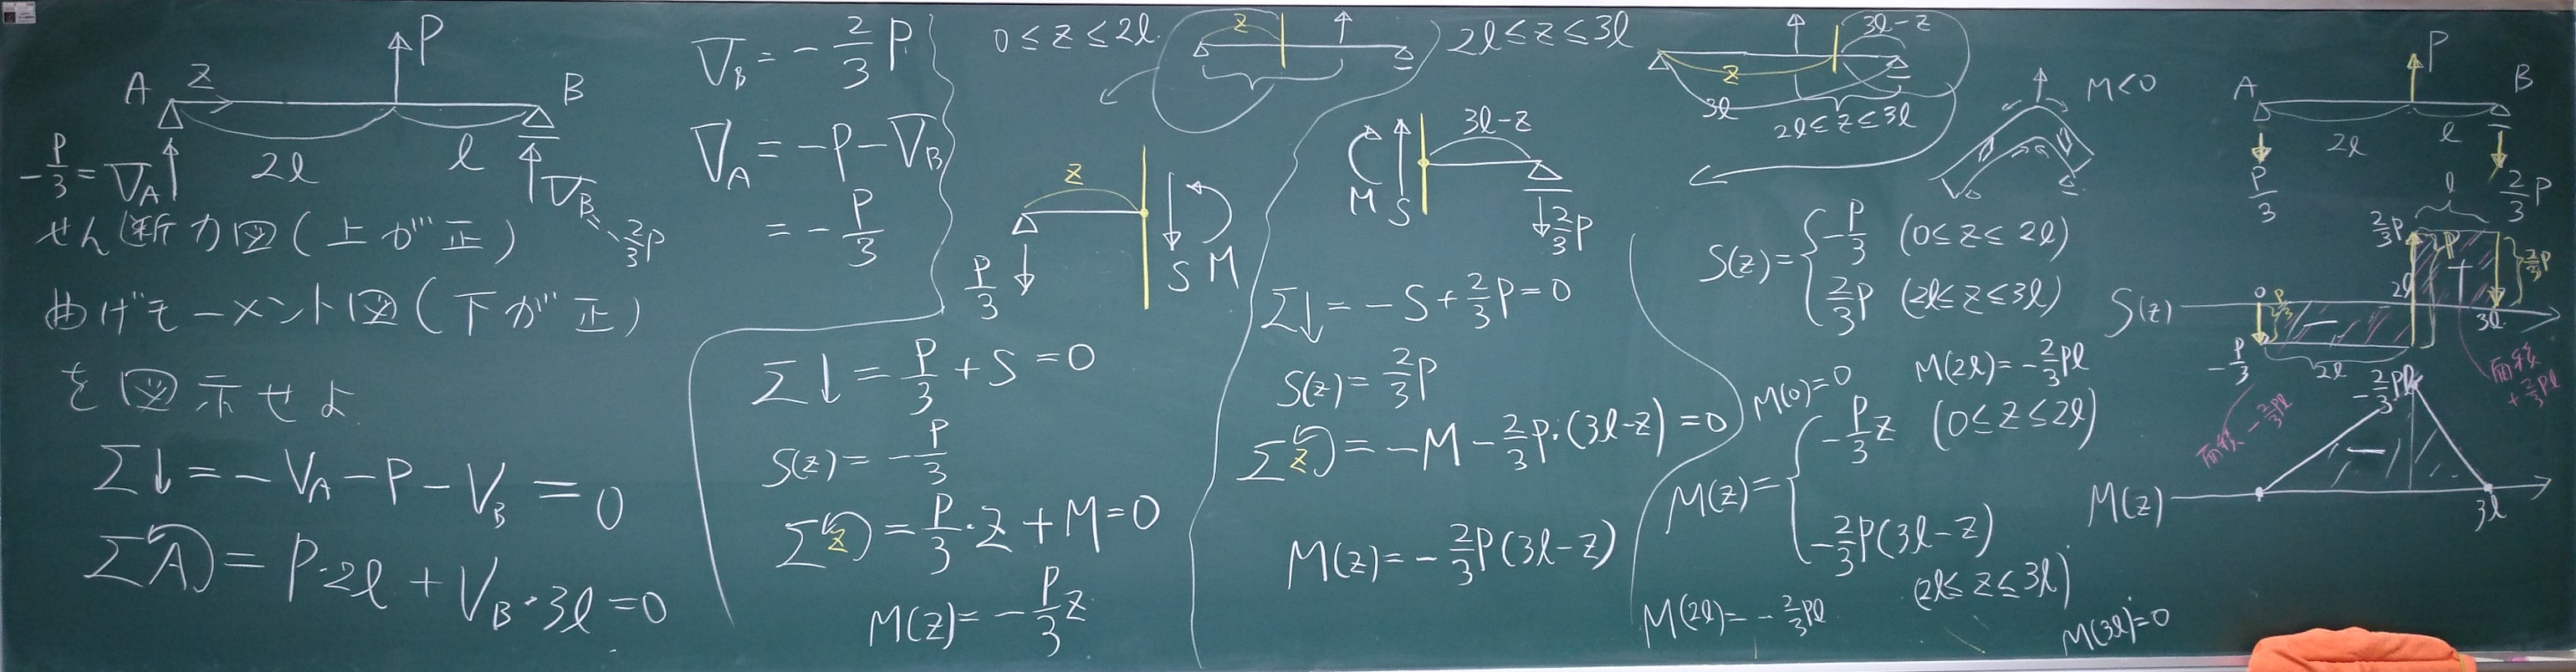 A z P B
-P/3 = V_A 2l l V_B = -2/3 P
せん断力図(上が正)
曲げモーメント図(下が正)
を図示せよ
Σ↓ = -V_A - P - V_B = 0
ΣA = P・2l + V_B・3l = 0
V_B = -2/3 P
V_A = -P - V_B
= -P/3
0 ≤ z ≤ 2l
z
z
P/3 S M
Σ↓ = P/3 + S = 0
S(z) = -P/3
Σz = P/3・z + M = 0
M(z) = -P/3 z
2l ≤ z ≤ 3l
3l-z
z
3l
2l ≤ z ≤ 3l
3l-z
M S 2/3 P
Σ↓ = -S + 2/3 P = 0
S(z) = 2/3 P
Σz = -M - 2/3 P・(3l-z) = 0
M(z) = -2/3 P(3l-z)
M<0
S(z) = { -P/3 (0 ≤ z ≤ 2l)
2/3 P (2l ≤ z ≤ 3l)
M(0)=0 M(2l) = -2/3 Pl
M(z) = { -P/3 z (0 ≤ z ≤ 2l)
-2/3 P(3l-z)
(2l ≤ z ≤ 3l)
M(2l) = -2/3 Pl M(3l)=0
A P B
2l l
P/3 2/3 P
l
2/3 P P + 2/3 P
S(z) 0 P/3 2l 3l
-P/3 − 2l
面積 -2/3 Pl
面積
+2/3 Pl
-2/3 Pl
−
M(z) 3l